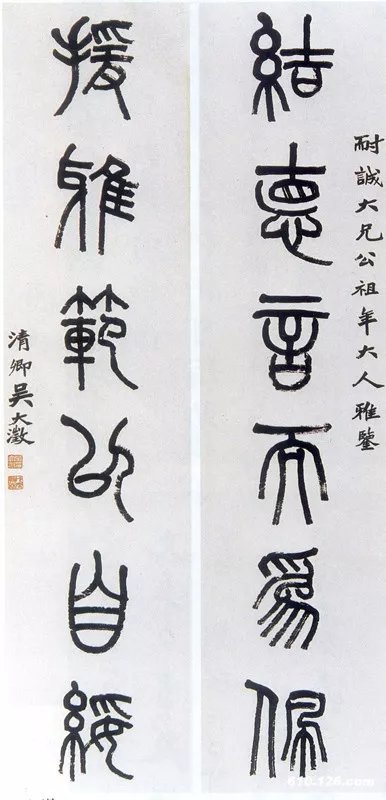 耐誠大兄公祖年大人雅鑒
結悳言而爲佩
援雅範以自綏
清卿吳大澂